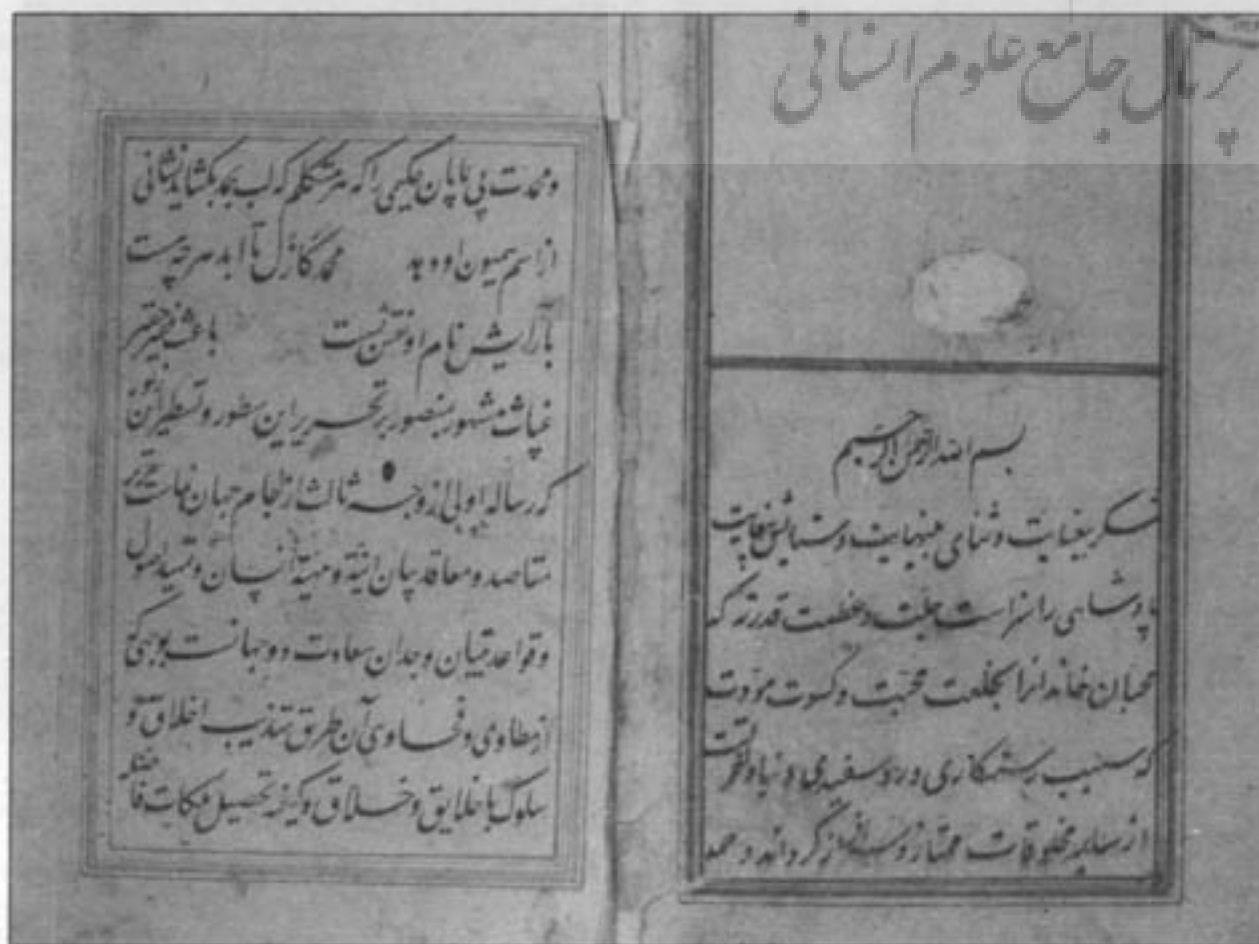 پرتال جامع علوم انسانی
بسم الله الرحمن الرحیم
شکر بیغایت و ثنای بینهایت و ستایش
پادشاهی را سزاست جلت و عظمت قدرته که
محبان خاندانرا بخلعت محبت و کسوت مودت
که سبب رستکاری و رو سفیدی دنیا و
از سایر مخلوقات ممتاز و سرافراز گرداند و حمد
و محمدت بی پایان حکیمی را که هر متکلم که لب بحمد بکشاید نشانی
از اسم همیون او دهد محمد کازل تا ابد هر چه هست
بآرایش نام او نقش بست باعث
غیاث مشهور بمنصور بر تحریر این سطور و تسطیر این
که رساله اولی از وجه ثالث از جام جهان نماست
مقاصد و معاقد بیان انیة و مهیة انسان و تمهید اصول
و قواعد تبیان وجدان سعادت دو جهانست بوجهی که
از مطاوی و فحاوی آن طرق تهذیب اخلاق و
سلوک با خلایق و خلاق و کیفیه تحصیل ملکات